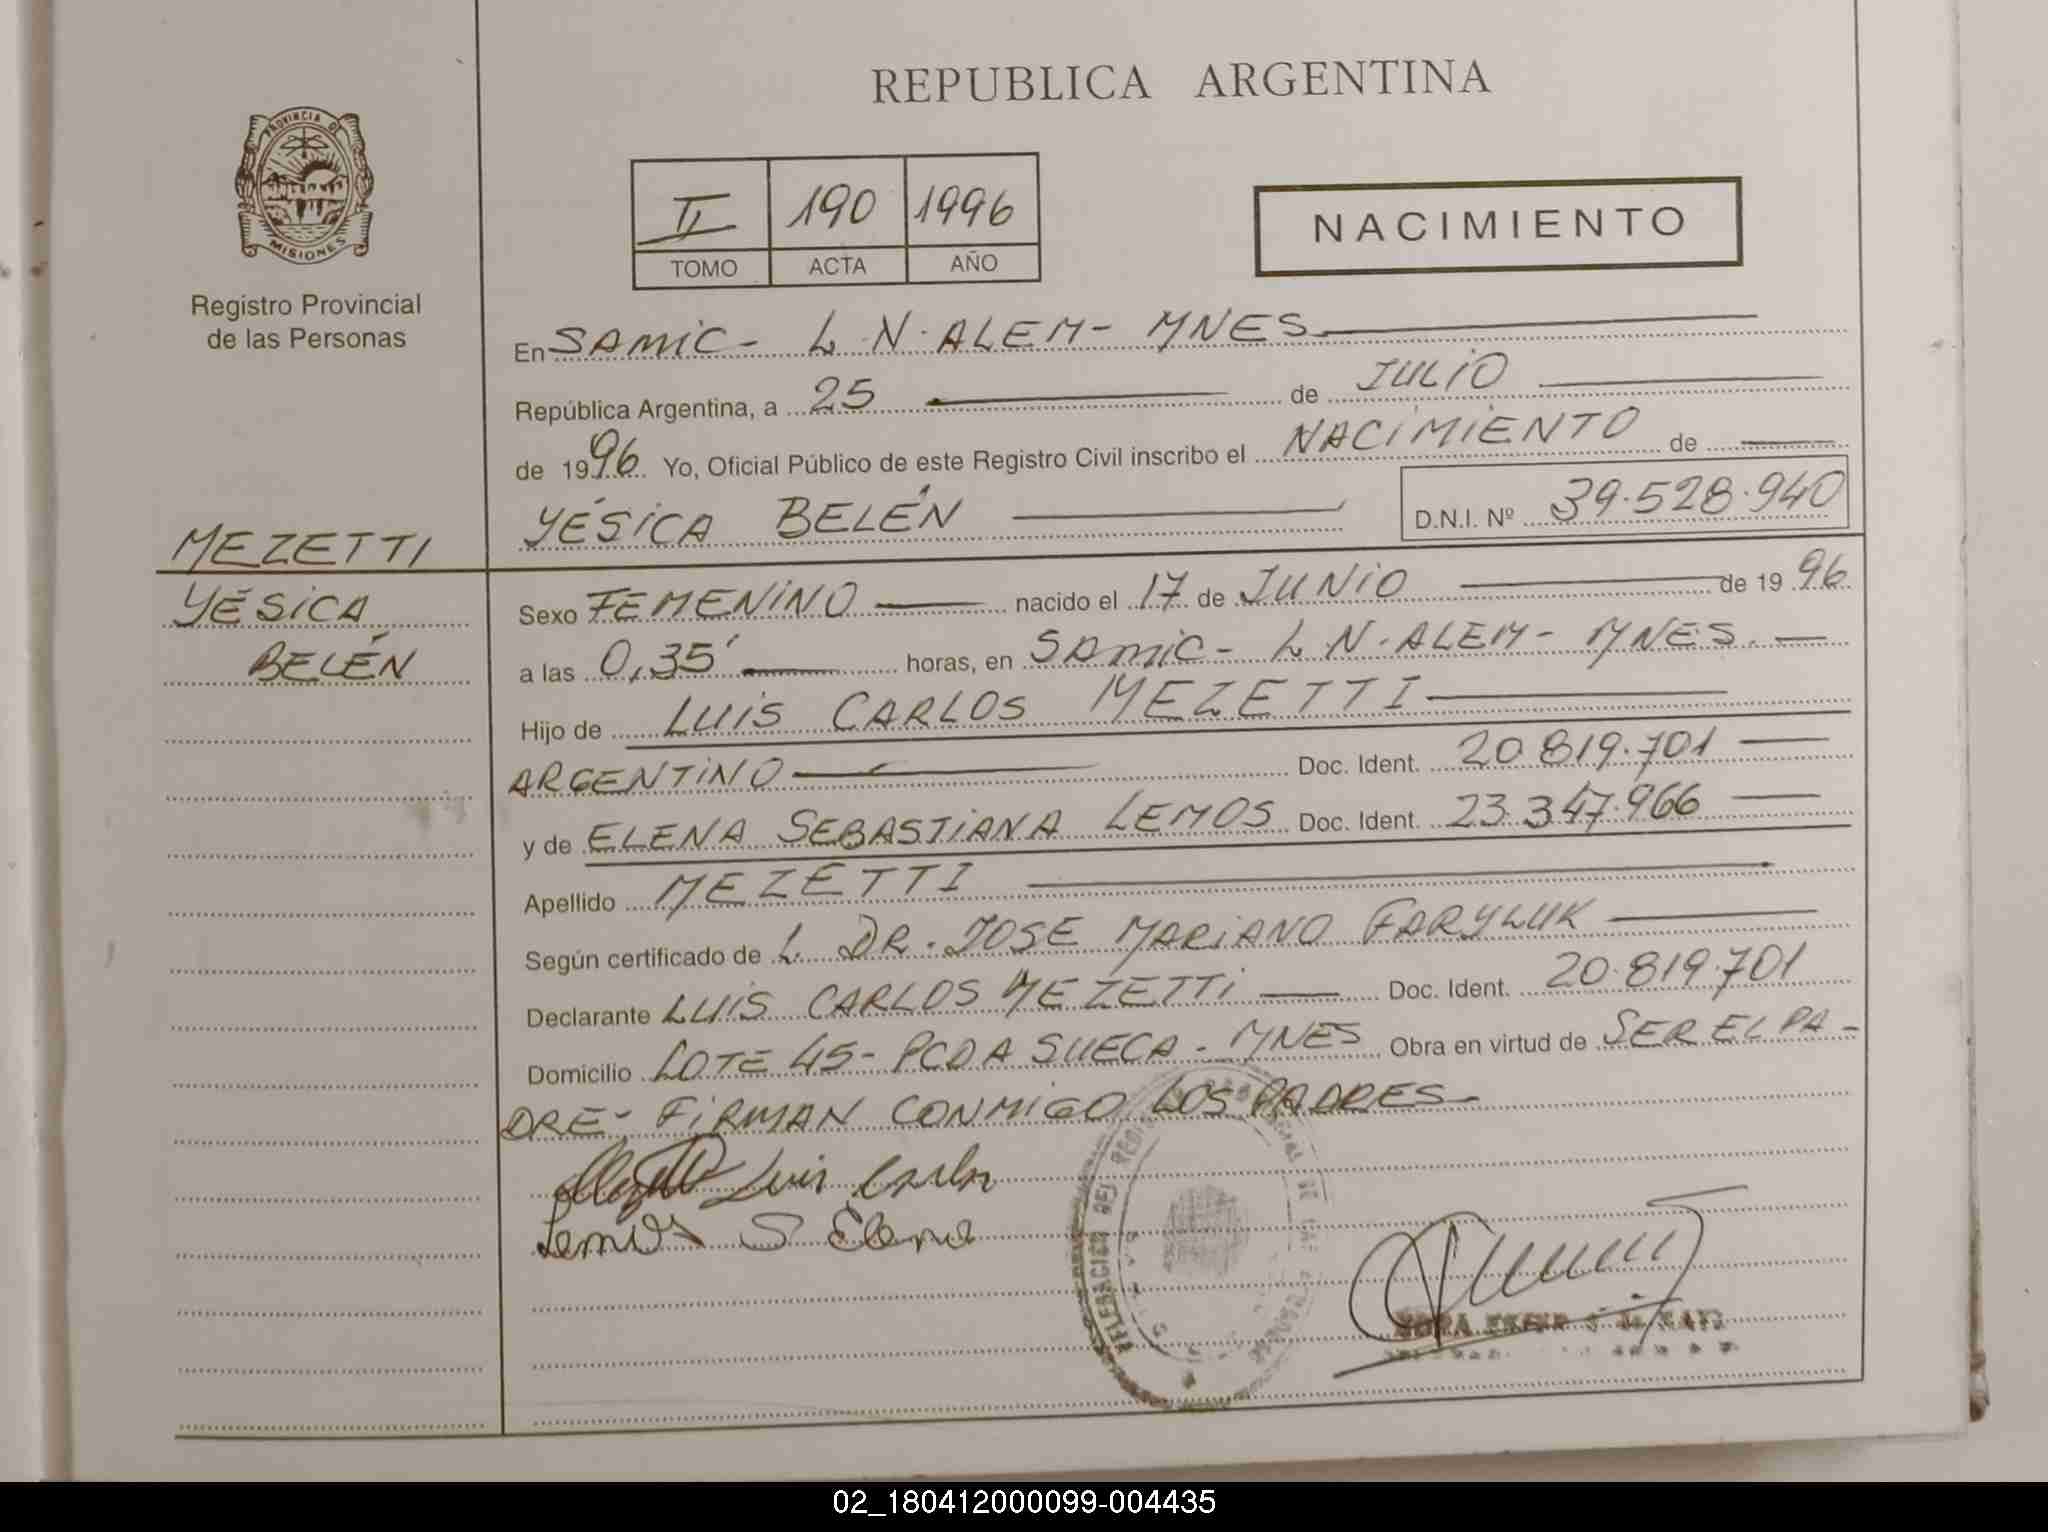 REPUBLICA ARGENTINA
PROVINCIA DE
MISIONES
Registro Provincial
de las Personas
II 190 1996
TOMO ACTA AÑO
NACIMIENTO
En SAMIC - L.N. ALEM - MNES
República Argentina, a 25 de JULIO
de 1996 Yo, Oficial Público de este Registro Civil inscribo el NACIMIENTO de
YÉSICA BELÉN D.N.I. Nº 39.528.940
MEZETTI
YÉSICA
BELÉN
Sexo FEMENINO nacido el 17 de JUNIO de 1996
a las 0,35' horas, en SAMIC - L.N. ALEM - MNES.
Hijo de LUIS CARLOS MEZETTI
ARGENTINO Doc. Ident. 20.819.701
y de ELENA SEBASTIANA LEMOS Doc. Ident. 23.347.966
Apellido MEZETTI
Según certificado de L. DR. JOSE MARIANO FARYLUK
Declarante LUIS CARLOS MEZETTI Doc. Ident. 20.819.701
Domicilio LOTE 45 - PCDA SUECA - MNES Obra en virtud de SER EL PA-
DRE - FIRMAN CONMIGO LOS PADRES -
Luis Carlos
Lemos S Elena
DELEGACION DEL
02_180412000099-004435